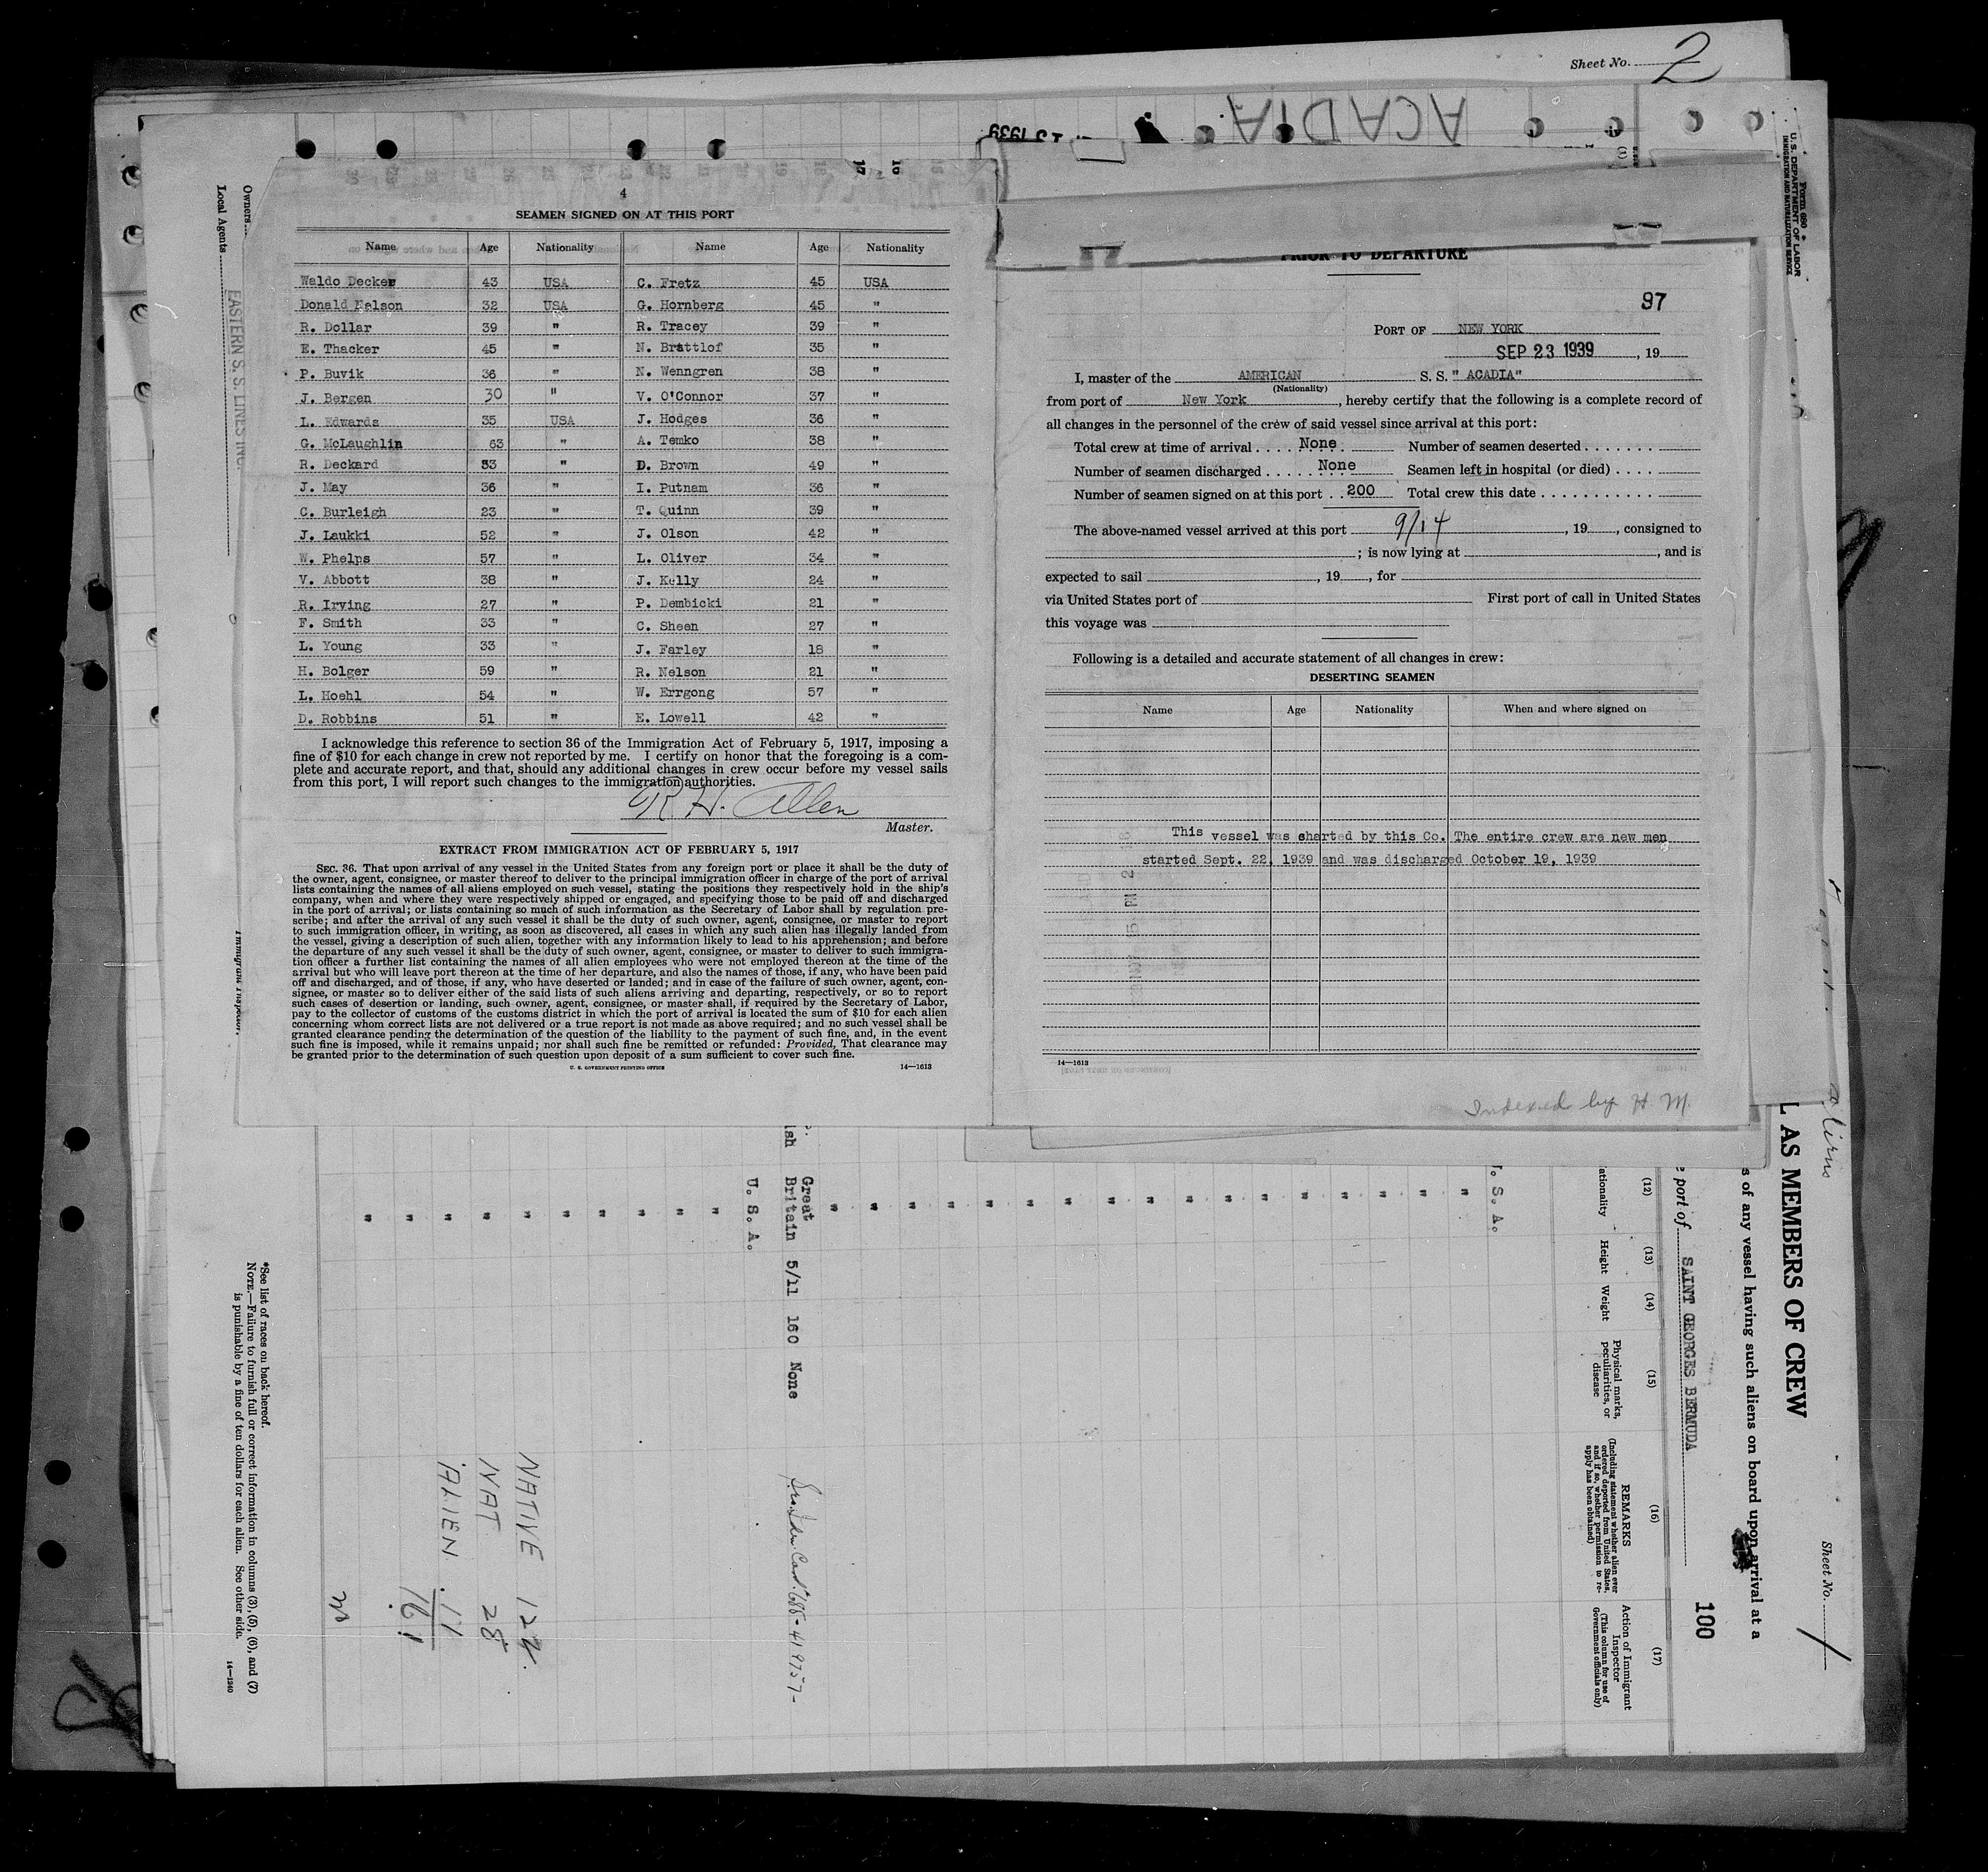 Sheet No. 2
ACADIA
1939
Form 680
U. S. DEPARTMENT OF LABOR
IMMIGRATION AND NATURALIZATION SERVICE
Owners
Local Agents
EASTERN S. S. LINES INC.
Immigrant Inspector.
4
SEAMEN SIGNED ON AT THIS PORT
Name Age Nationality Name Age Nationality
Waldo Decker 43 USA C. Fretz 45 USA
Donald Nelson 32 USA G. Hornberg 45 "
R. Dollar 39 " R. Tracey 39 "
E. Thacker 45 " N. Brattlof 35 "
P. Buvik 36 " N. Wenngren 38 "
J. Bergen 30 " V. O'Connor 37 "
L. Edwards 35 USA J. Hodges 36 "
G. McLaughlin 63 " A. Temko 38 "
R. Deckard 53 " D. Brown 49 "
J. May 36 " I. Putnam 36 "
C. Burleigh 23 " T. Quinn 39 "
J. Laukki 52 " J. Olson 42 "
W. Phelps 57 " L. Oliver 34 "
V. Abbott 38 " J. Kelly 24 "
R. Irving 27 " P. Dembicki 21 "
F. Smith 33 " C. Sheen 27 "
L. Young 33 " J. Farley 18 "
H. Bolger 59 " R. Nelson 21 "
L. Hoehl 54 " W. Errgong 57 "
D. Robbins 51 " E. Lowell 42 "
I acknowledge this reference to section 36 of the Immigration Act of February 5, 1917, imposing a
fine of $10 for each change in crew not reported by me. I certify on honor that the foregoing is a com-
plete and accurate report, and that, should any additional changes in crew occur before my vessel sails
from this port, I will report such changes to the immigration authorities.
R H. Allen
Master.
EXTRACT FROM IMMIGRATION ACT OF FEBRUARY 5, 1917
SEC. 36. That upon arrival of any vessel in the United States from any foreign port or place it shall be the duty of
the owner, agent, consignee, or master thereof to deliver to the principal immigration officer in charge of the port of arrival
lists containing the names of all aliens employed on such vessel, stating the positions they respectively hold in the ship's
company, when and where they were respectively shipped or engaged, and specifying those to be paid off and discharged
in the port of arrival; or lists containing so much of such information as the Secretary of Labor shall by regulation pre-
scribe; and after the arrival of any such vessel it shall be the duty of such owner, agent, consignee, or master to report
to such immigration officer, in writing, as soon as discovered, all cases in which any such alien has illegally landed from
the vessel, giving a description of such alien, together with any information likely to lead to his apprehension; and before
the departure of any such vessel it shall be the duty of such owner, agent, consignee, or master to deliver to such immigra-
tion officer a further list containing the names of all alien employees who were not employed thereon at the time of the
arrival but who will leave port thereon at the time of her departure, and also the names of those, if any, who have been paid
off and discharged, and of those, if any, who have deserted or landed; and in case of the failure of such owner, agent, con-
signee, or master so to deliver either of the said lists of such aliens arriving and departing, respectively, or so to report
such cases of desertion or landing, such owner, agent, consignee, or master shall, if required by the Secretary of Labor,
pay to the collector of customs of the customs district in which the port of arrival is located the sum of $10 for each alien
concerning whom correct lists are not delivered or a true report is not made as above required; and no such vessel shall be
granted clearance pending the determination of the question of the liability to the payment of such fine, and, in the event
such fine is imposed, while it remains unpaid; nor shall such fine be remitted or refunded: Provided, That clearance may
be granted prior to the determination of such question upon deposit of a sum sufficient to cover such fine.
U. S. GOVERNMENT PRINTING OFFICE 14—1613
PRIOR TO DEPARTURE
97
PORT OF NEW YORK
SEP 23 1939, 19
I, master of the AMERICAN S. S. " ACADIA"
(Nationality)
from port of New York, hereby certify that the following is a complete record of
all changes in the personnel of the crew of said vessel since arrival at this port:
Total crew at time of arrival . . . . None Number of seamen deserted . . . . . . .
Number of seamen discharged . . . . . None Seamen left in hospital (or died) . . . .
Number of seamen signed on at this port . . 200 Total crew this date . . . . . . . . . . .
The above-named vessel arrived at this port 9/14, 19, consigned to
; is now lying at , and is
expected to sail , 19, for
via United States port of First port of call in United States
this voyage was
Following is a detailed and accurate statement of all changes in crew:
DESERTING SEAMEN
Name Age Nationality When and where signed on
This vessel was charted by this Co. The entire crew are new men
started Sept. 22, 1939 and was discharged October 19, 1939
14—1613
Indexed by H. M.
L AS MEMBERS OF CREW
s of any vessel having such aliens on board upon arrival at a
Sheet No. 1
e port of SAINT GEORGES BERMUDA
100
(12) (13) (14) (15) (16) (17)
ationality Height Weight
Physical marks, peculiarities, or disease
REMARKS
(Including statement whether alien ever ordered deported from United States, and if so, whether permission to re-apply has been obtained)
Action of Immigrant Inspector
(This column for use of Government officials only)
. S. A.
Great
Britain 5/11 160 None
U. S. A.
NATIVE 122
NAT 28
ALIEN 11
161
*See list of races on back hereof.
NOTE.—Failure to furnish full or correct information in columns (3), (5), (6), and (7)
is punishable by a fine of ten dollars for each alien. See other side.
14—1240